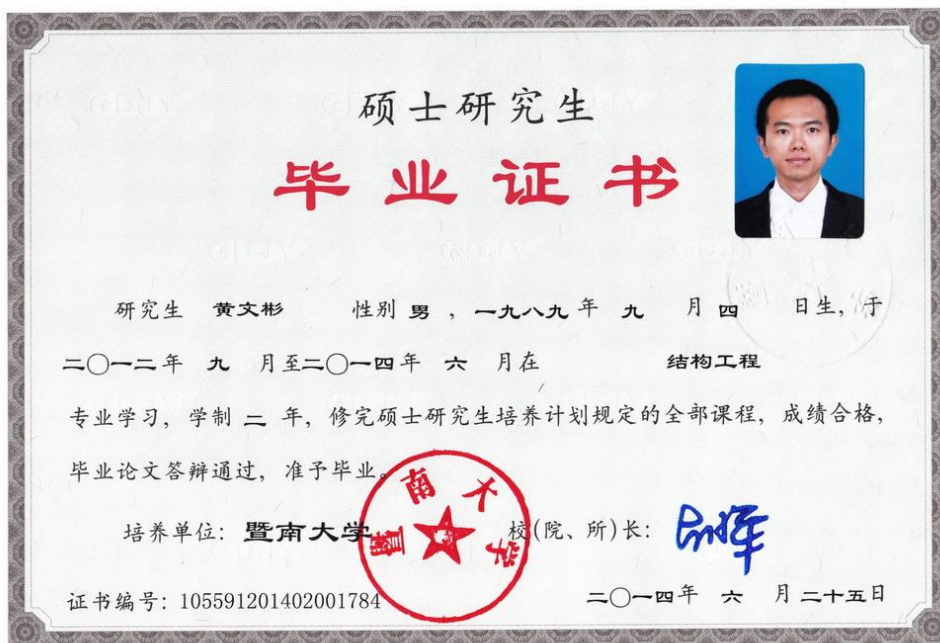 硕士研究生
毕业证书
研究生 黄文彬 性别 男 , 一九八九 年 九 月 四 日生, 于
二〇一二年 九 月至二〇一四年 六 月在 结构工程
专业学习, 学制 二 年, 修完硕士研究生培养计划规定的全部课程, 成绩合格,
毕业论文答辩通过, 准予毕业。
培养单位: 暨南大学 校(院、所)长:
暨南大学
证书编号: 105591201402001784 二〇一四年 六 月 二十五日